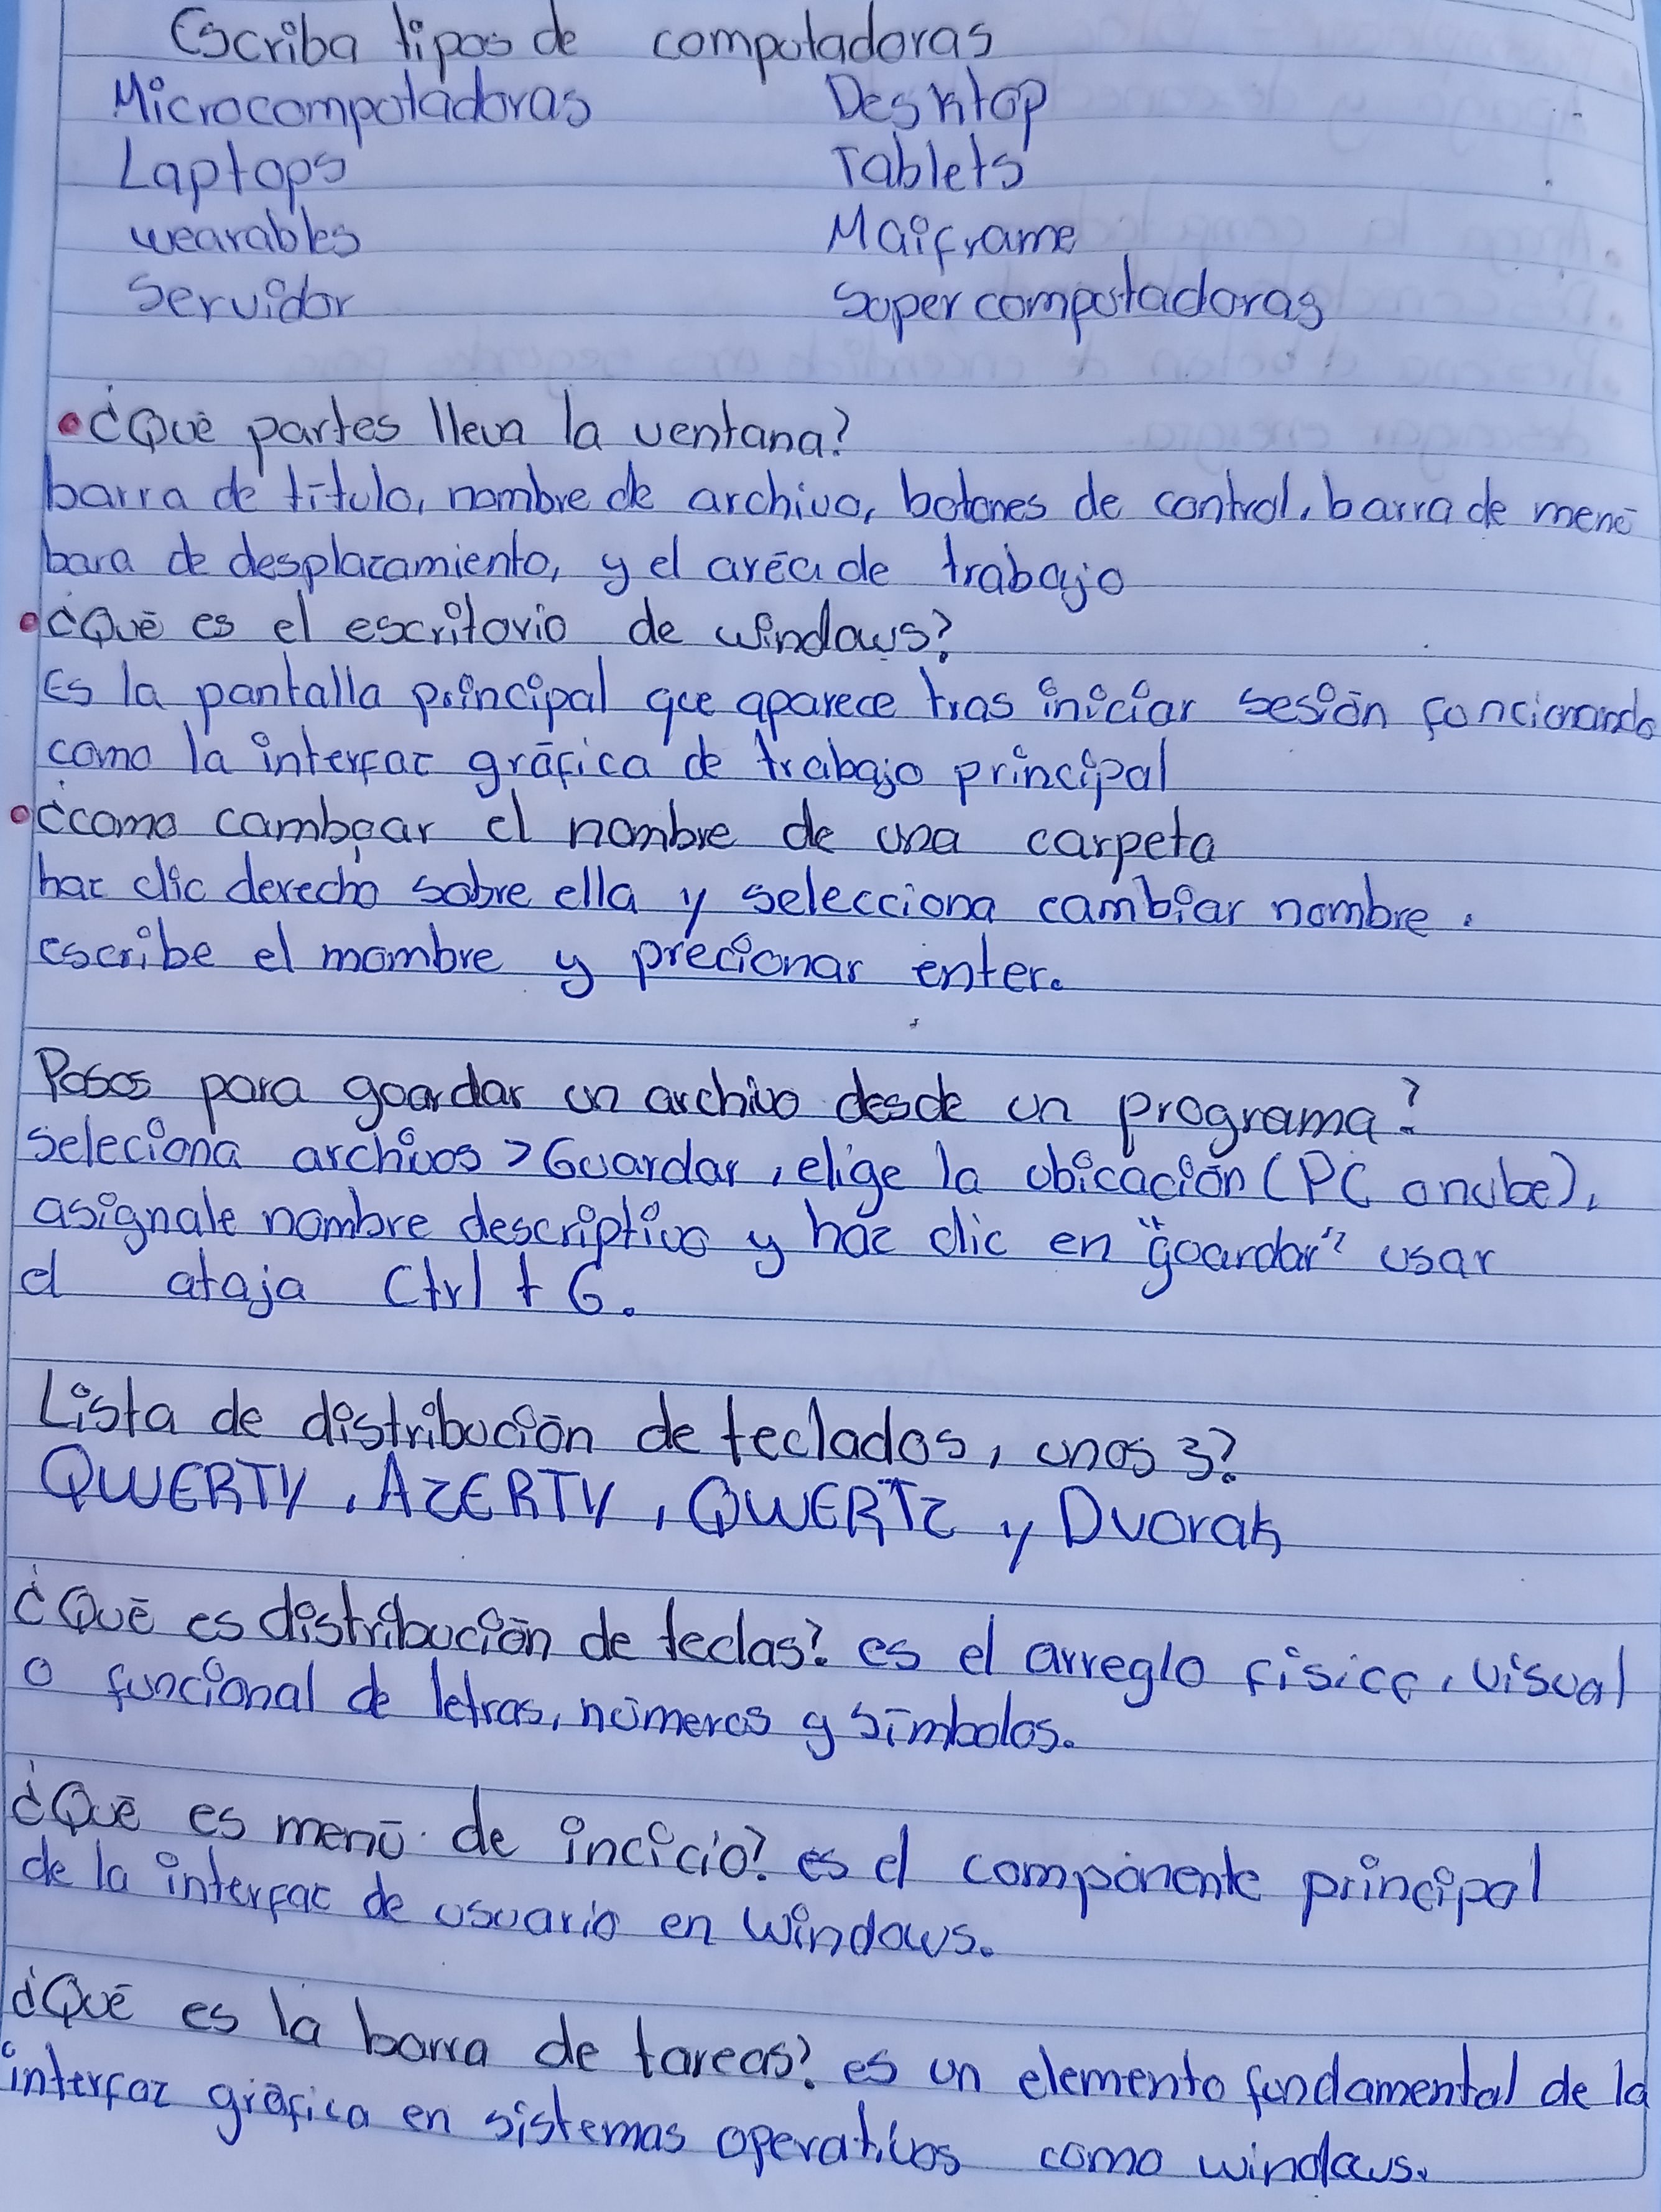 Escriba tipos de computadoras
Microcomputadoras Desktop
Laptops Tablets
wearables Maiframe
Servidor Supercomputadoras
¿Qué partes lleva la ventana?
barra de título, nombre de archivo, botones de control, barra de menú
bara de desplazamiento, y el areá de trabajo
¿Qué es el escritorio de windows?
Es la pantalla principal que aparece tras iniciar sesión funcionando
como la interfaz gráfica de trabajo principal
¿como cambiar el nombre de una carpeta
haz clic derecho sobre ella y selecciona cambiar nombre.
escribe el mombre y precionar enter.
Pasos para guardar un archivo desde un programa?
seleciona archivos > Guardar, elige la ubicación (PC o nube),
asignale nombre descriptivo y haz clic en "guardar" usar
el ataja Ctrl + G.
Lista de distribución de teclados, unos 3?
QWERTY, AZERTY, QWERTZ y Dvorak
¿Qué es distribución de teclas? es el arreglo físico, visual
o funcional de letras, números y símbolos.
¿Qué es menú de incicio? es el componente principal
de la interfaz de usuario en Windows.
¿Qué es la barra de tareas? es un elemento fundamental de la
interfaz gráfica en sistemas operativos como windows.